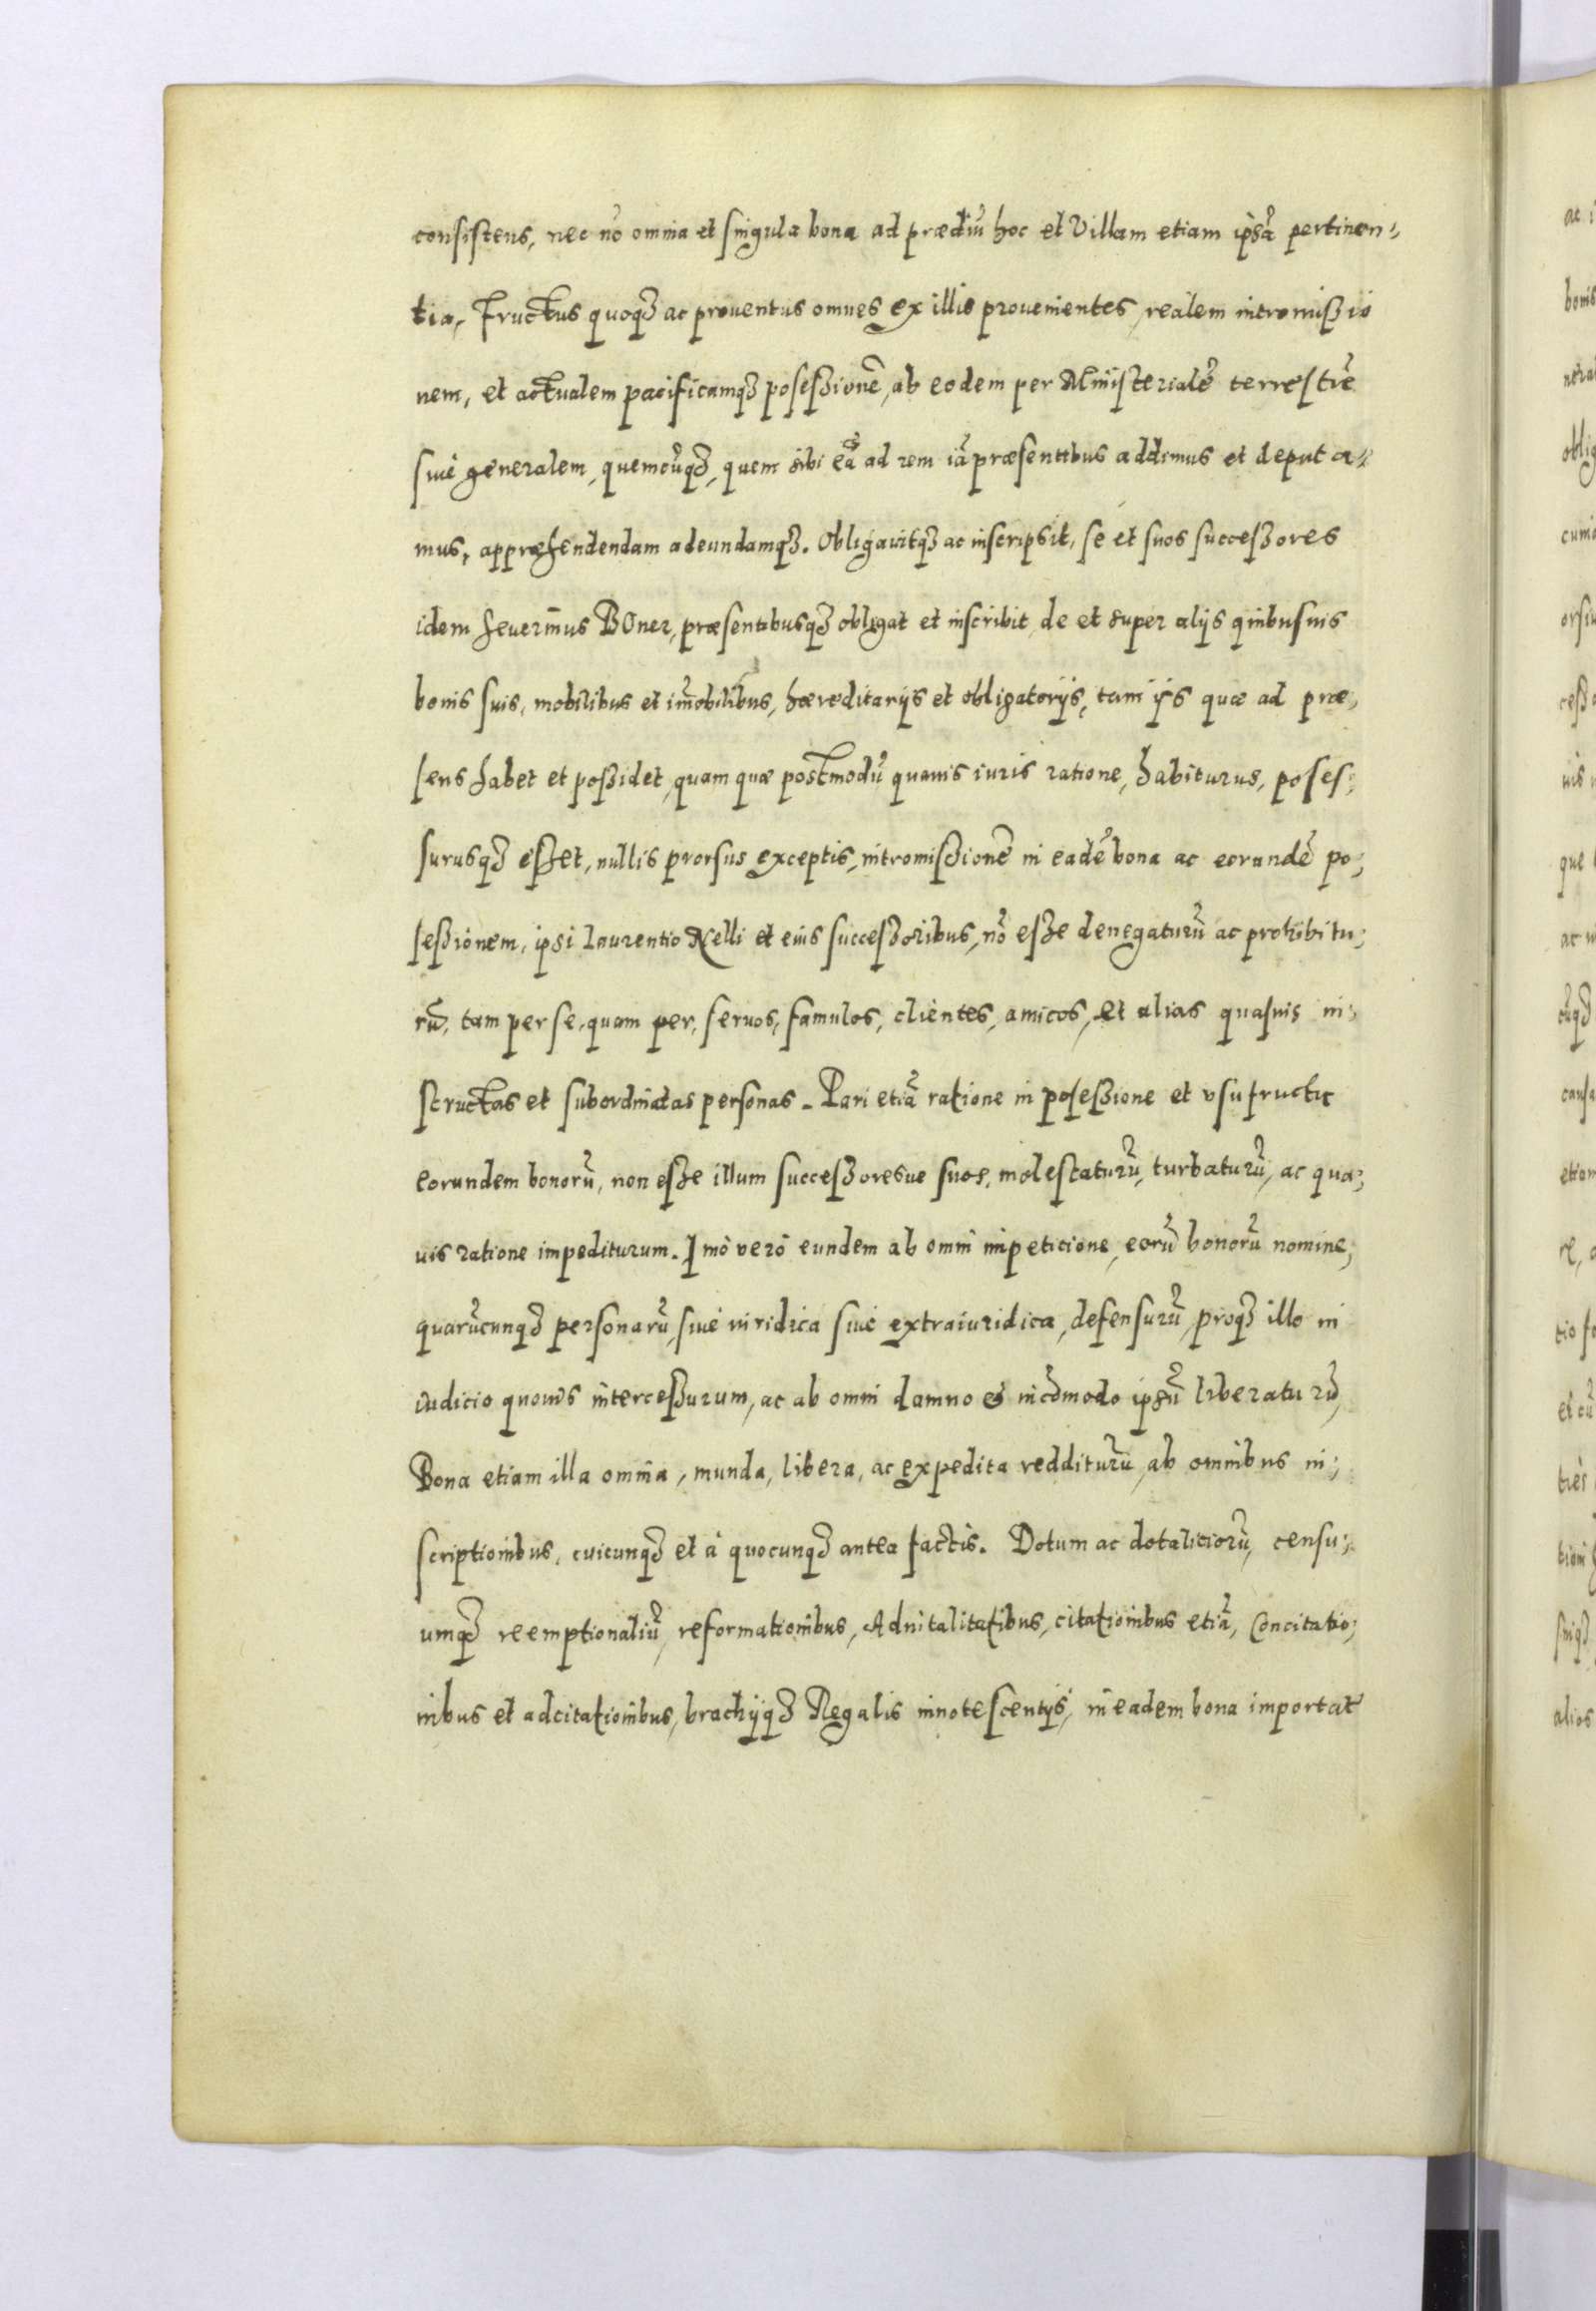 consistens, nec nō omnia et singula bona ad prædiū hoc et Villam etiam ipsā pertinen⸗
tia, Fructus quoqȝ ac prouentus omnes ex illis prouenientes, realem intromißio
nem, et actualem pacificamqȝ poseßionē, ab eodem per Ministerialē terrestrē
siuè generalem, quemcūqȝ, quem sibi eā ad rem iā præsentibus addimus et deputa⸗
mus, appræhendendam adeundamqȝ. Obligauitqȝ ac inscripsit, se et suos succeßores
idem Seuerīnus BOner, præsentibusqȝ obligat et inscribit, de et super alijs quibusuis
bonis suis, mobilibus et im̄obilibus, hæreditarijs et obligatorijs, tam ijs quæ ad præ⸗
sens habet et poßidet, quam quæ postmodū quauis iuris ratione, habiturus, poses⸗
surusqȝ eßet, nullis prorsus exceptis, intromißionē in eadē bona ac eorundē po⸗
seßionem, ipsi Laurentio Nelli et eius succeßoribus, nō eße denegaturū ac prohibitu⸗
rū, tam per se, quam per, seruos, famulos, clientes, amicos, et alias quasuis in⸗
structas et subordinatas personas. Pari etiā ratione in poseßione et vsufructu
eorundem bonorū, non eße illum succeßoresue suos, molestaturū, turbaturū, ac qua⸗
uis ratione impediturum. Imò verò eundem ab omni impeticione, eorū bonorū nomine,
quarūcunqȝ personarū, siuè iuridica siuè extraiuridica, defensurū, proqȝ illo in
iudicio quouis interceßurum, ac ab omni damno & incōmodo ipsū liberaturū,
Bona etiam illa omnia, munda, libera, ac expedita redditurū, ab omnibus in⸗
scriptionibus, cuicunqȝ et à quocunqȝ antea factis. Dotum ac dotaliciorū, censu⸗
umqȝ reemptionaliū, reformationibus, Aduitalitatibus, citationibus etiā, Concitatio⸗
nibus et adcitationibus, brachijqȝ Regalis innotescentijs, in eadem bona importat